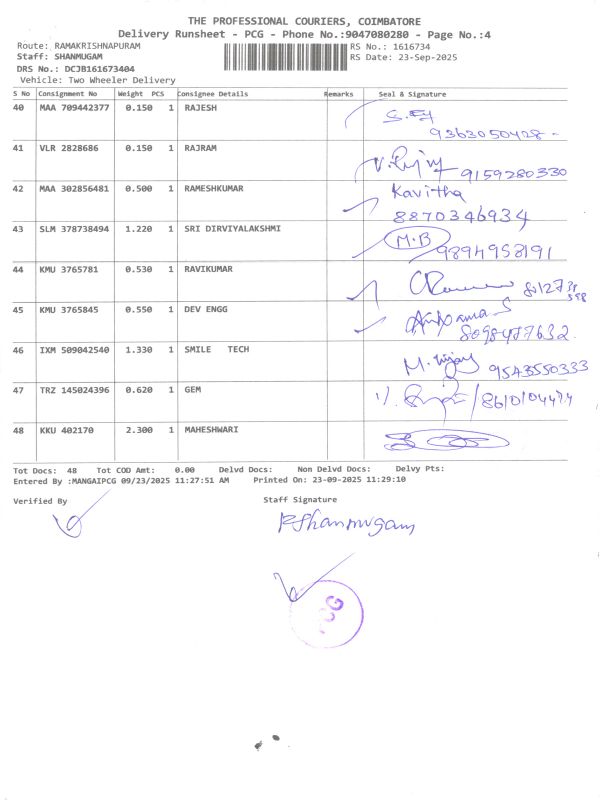 THE PROFESSIONAL COURIERS, COIMBATORE
Delivery Runsheet - PCG - Phone No.:9047080280 - Page No.:4
Route: RAMAKRISHNAPURAM RS No.: 1616734
Staff: SHANMUGAM RS Date: 23-Sep-2025
DRS No.: DCJB161673404
Vehicle: Two Wheeler Delivery
S No Consignment No Weight PCS Consignee Details Remarks Seal & Signature
40 MAA 709442377 0.150 1 RAJESH
9363050428
41 VLR 2828686 0.150 1 RAJRAM
9159280330
42 MAA 302856481 0.500 1 RAMESHKUMAR Kavitha
8870346934
43 SLM 378738494 1.220 1 SRI DIRVIYALAKSHMI M.B
9894958191
44 KMU 3765781 0.530 1 RAVIKUMAR
45 KMU 3765845 0.550 1 DEV ENGG
8098477632
46 IXM 509042540 1.330 1 SMILE TECH M. Vijay 9543550333
47 TRZ 145024396 0.620 1 GEM
48 KKU 402170 2.300 1 MAHESHWARI
Tot Docs: 48 Tot COD Amt: 0.00 Delvd Docs: Non Delvd Docs: Delvy Pts:
Entered By :MANGAIPCG 09/23/2025 11:27:51 AM Printed On: 23-09-2025 11:29:10
Verified By Staff Signature
P.Shanmugam
PCG